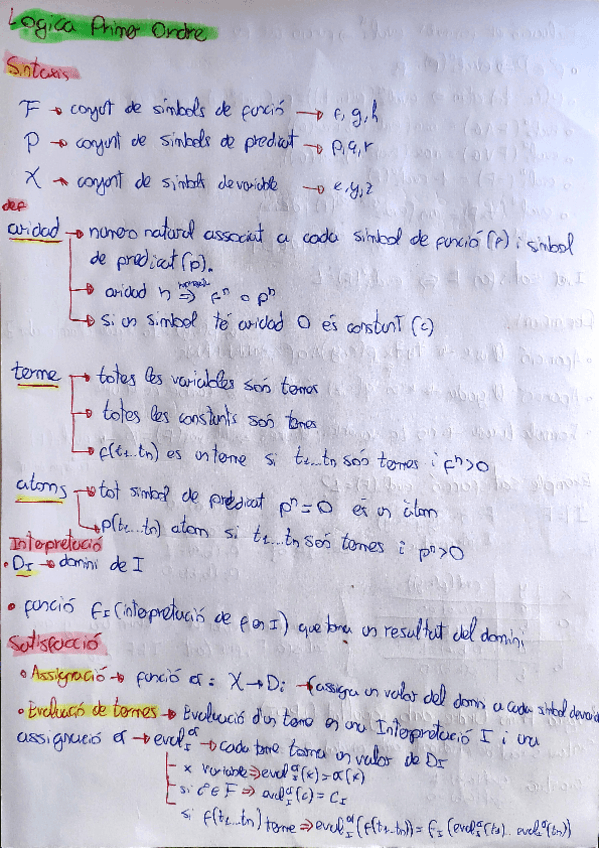 Lògica Primer Ordre
Sintaxis
F → conjunt de símbols de funció → f, g, h
P → conjunt de símbols de predicat → p, q, r
X → conjunt de símbols de variable → x, y, z
def
aridad → numero natural associat a cada simbol de funció (f) i simbol
de predicat (p).
→ aridad n normal⇒ fⁿ o pⁿ
→ si un simbol té aridad 0 és constant (c)
terme → totes les variables són termes
→ totes les constants són termes
→ f(t₁...tn) es un terme si t₁...tn són termes i fⁿ>0
atoms → tot simbol de predicat pⁿ=0 és un àtom
→ p(t₁...tn) atom si t₁...tn són termes i pⁿ>0
Interpretació
• D_I → domini de I
• funció f_I (interpretació de f en I) que torna un resultat del domini
Satisfacció
• Assignació → funció α: X → D_I → (assigna un valor del domini a cada simbol de variable
• Evaluació de termes → Evaluació d'un terme en una Interpretació I i una
assignació α → eval_I^α → cada terme torna un valor de D_I
- x variable ⇒ eval_I^α(x) = α(x)
- si c⁰ ∈ F ⇒ eval_I^α(c) = C_I
si f(t₁...tn) terme ⇒ eval_I^α(f(t₁...tn)) = f_I(eval_I^α(t₁)...eval_I^α(tn))